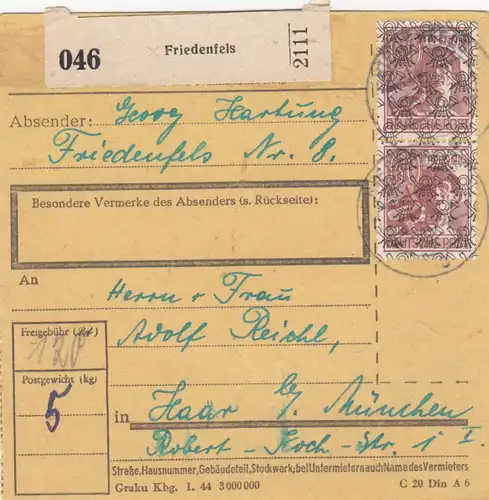 046 Friedenfels 2111
Absender: Georg Hartung
Friedenfels Nr. 8.
Besondere Vermerke des Absenders (s. Rückseite):
An
Herrn u Frau
Adolf Reichl,
Freigebühr (Rℳ)
120
Postgewicht (kg)
5
in Haar b/ München
Robert-Koch-Str. 1 I
Straße, Hausnummer, Gebäudeteil, Stockwerk; bei Untermietern auch Name des Vermieters
Graku Kbg. 1. 44 3000000 C 20 Din A 6
DEUTSCHE POST
DEUTSCHE POST